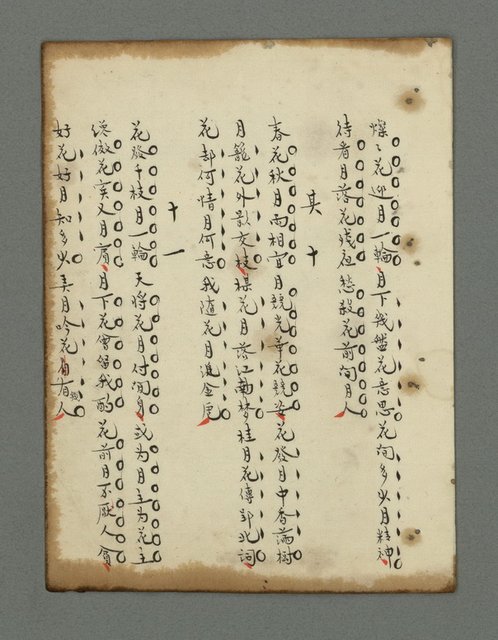 燦々花迎月一輪月下幾餘花意思花間多少月精神
待看月落花殘夜愁殺花前問月人
其十
春花秋月兩相宜月競光華花競姿花發月中香滿樹
月籠花外影交枝梅花月落江南夢桂月花傳郢北詞
花却何情月何意我隨花月泛金卮
十一
花發千枝月一輪天將花月付閑身或為月主為花主
纔做花賓又月賓月下花曾留我酌花前月不厭人貧
好花好月知多少弄月吟花有我人